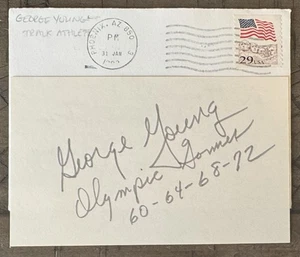 GEORGE YOUNG
TRACK ATHLETE
PHOENIX, AZ 850
PM
31 JAN
29 USA
George Young
Olympic Runner
60-64-68-72